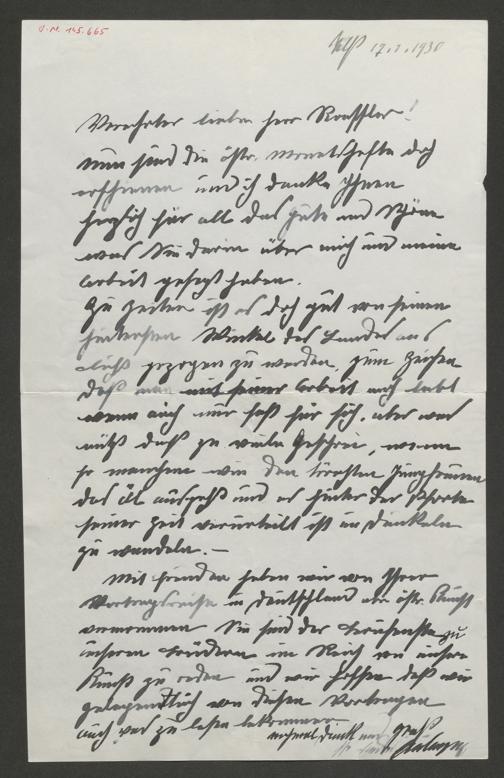 J.N. 145.665
17.1.1930
Verehrter lieber Herr Roessler!
Nun sind die östr. Monatshefte doch
erschienen und ich danke Ihnen
herzlich für all das Gute und Schöne
was Sie darin über mich und meine
Arbeit gesagt haben.
Zu Zeiten ist es doch gut von seinem
hintersten Winkel des Landes aus
gezogen zu werden, zum Zeichen
daß man mit seiner Arbeit noch lebt
wenn auch nur fast für sich, aber was
nützt das so viele Geschrei, wenn
so manchem wie den törichten Jungfrauen
das Öl ausgeht und er hinter der Pforte
seiner Zeit verurteilt ist im Dunkeln
zu wandeln. —
Mit Freuden haben wir von Ihrer
Vortragsreise in Deutschland über östr. Kunst
vernommen Sie sind der berufenste zu
unseren Brüdern im Reich von unserer
Kunst zu reden und wir hoffen daß wir
gelegentlich von diesen Vorträgen
auch was zu lesen bekommen
nochmal Dank und Gruß